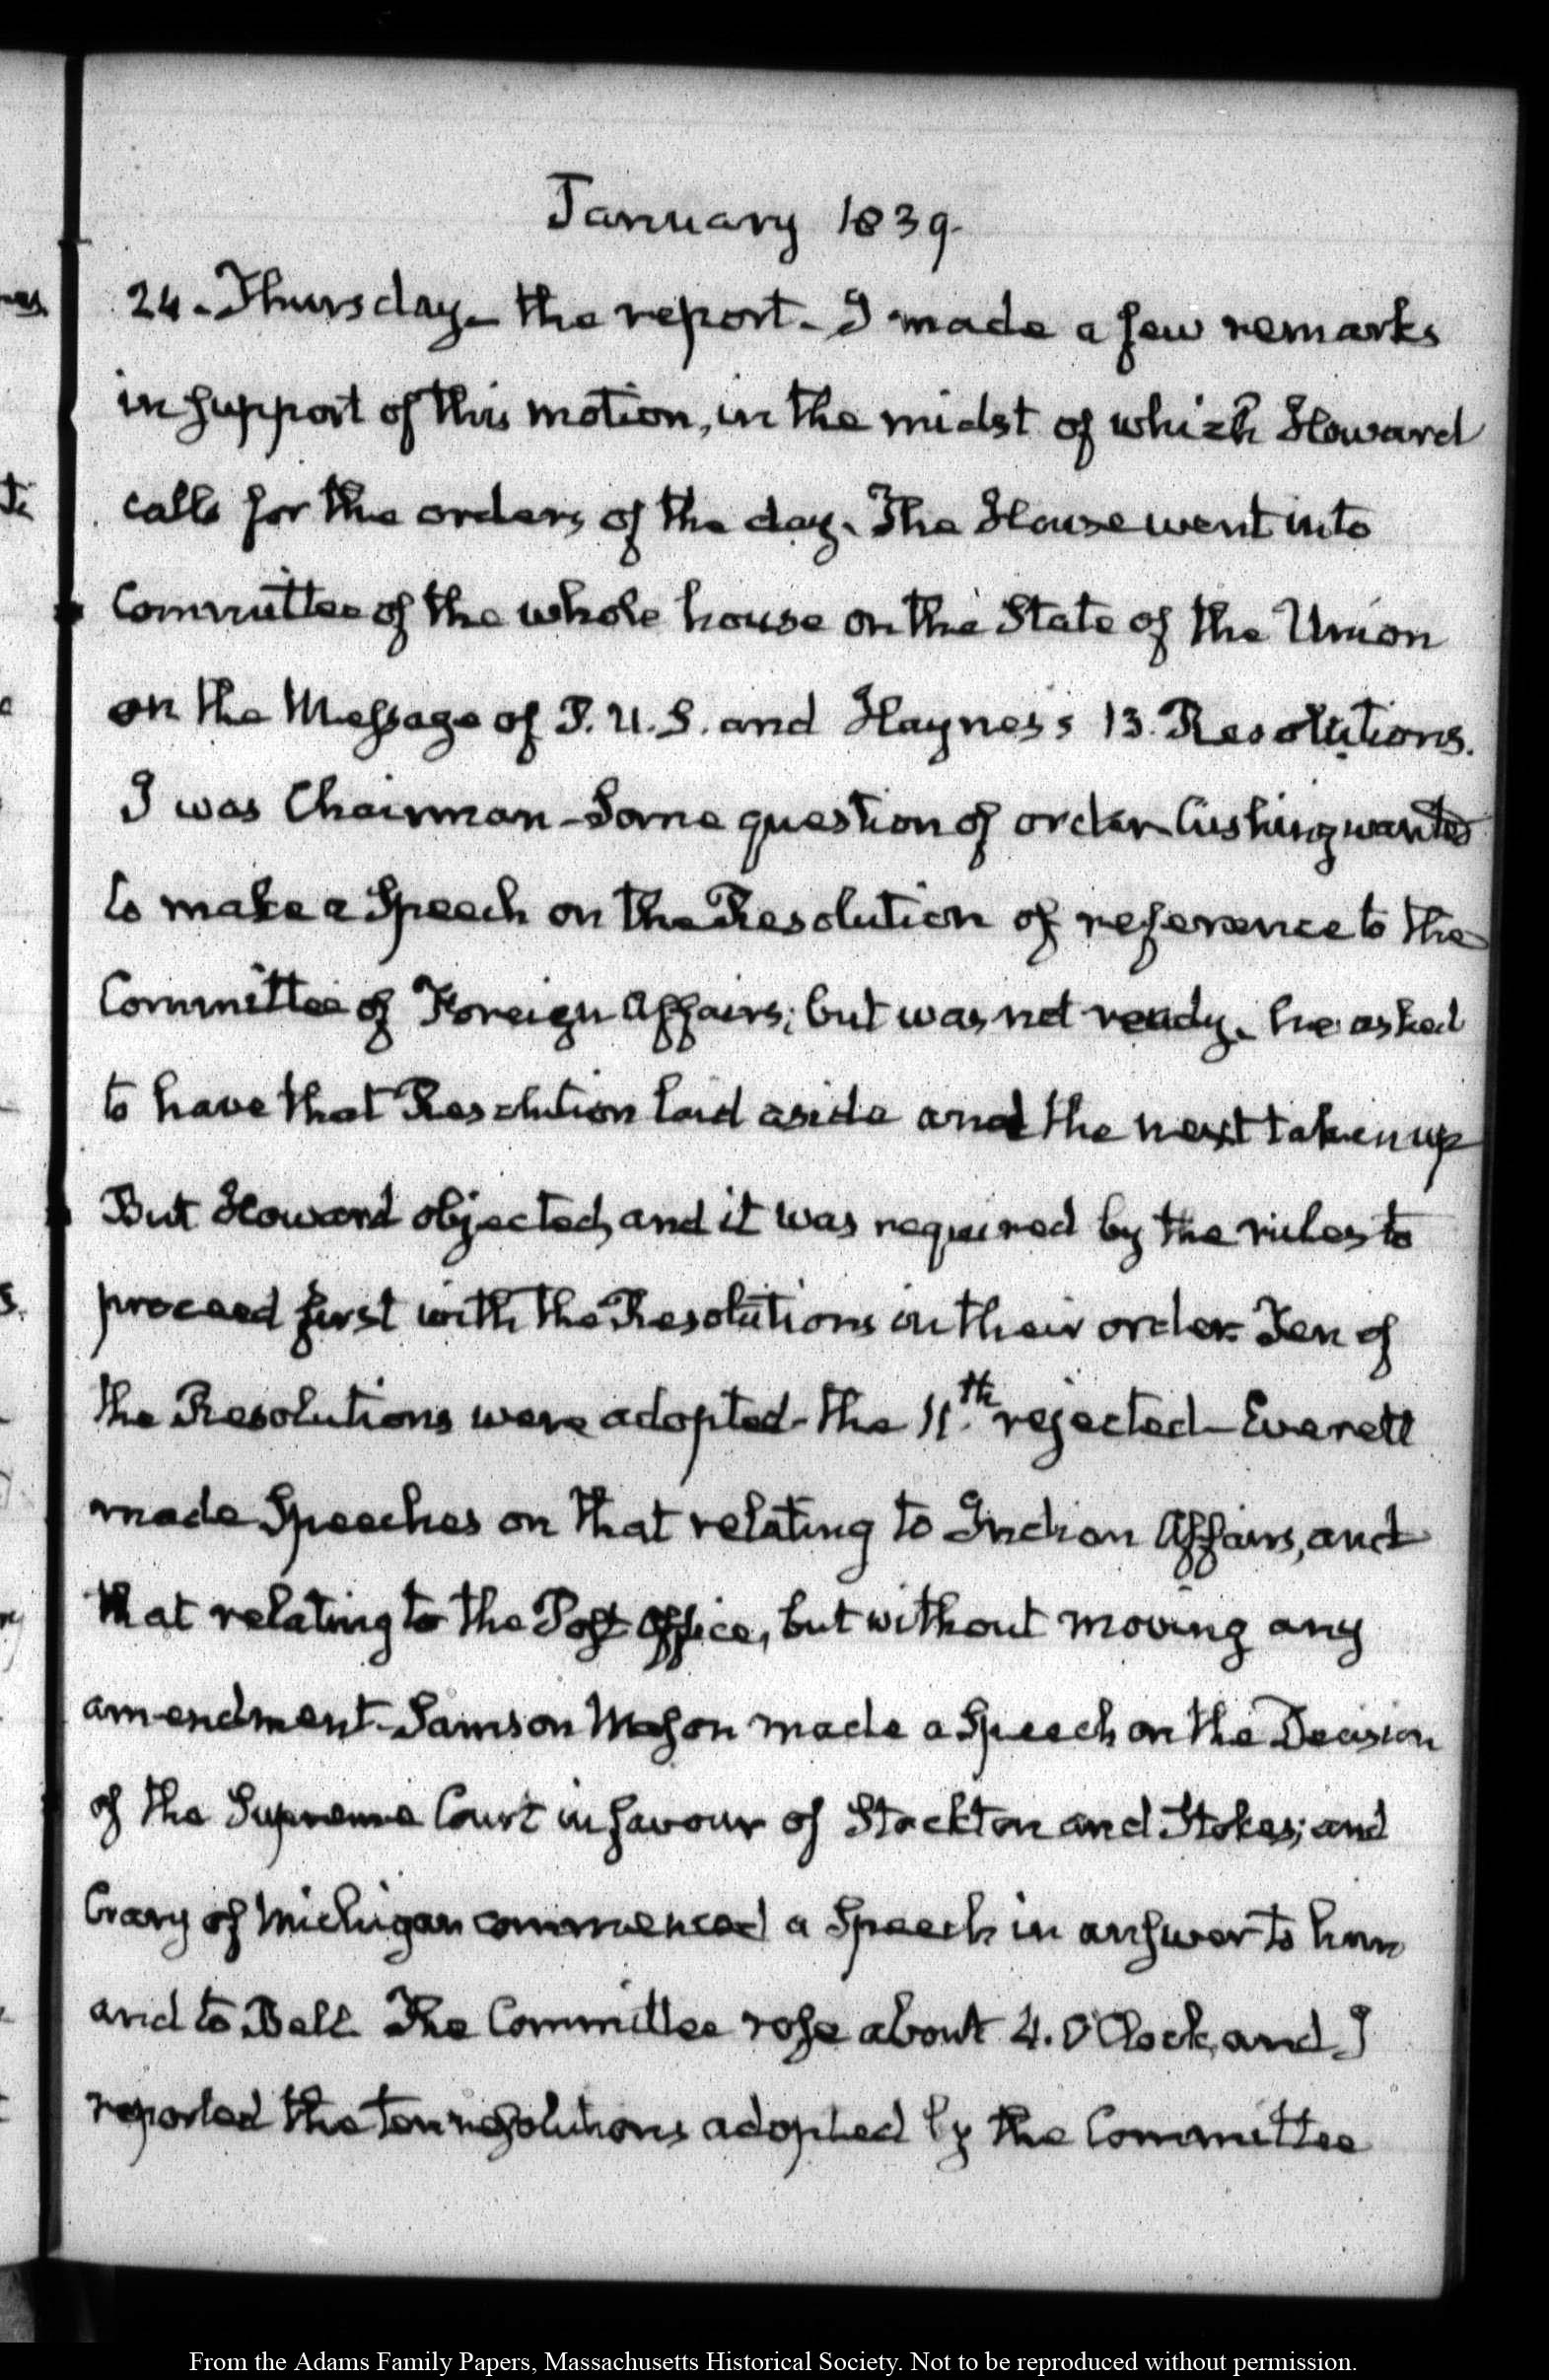 January 1839.
24. Thursday. the report. I made a few remarks
in support of this motion, in the midst of which Howard
calls for the orders of the day. The House went into
Committee of the whole house on the State of the Union
on the Message of P. U. S. and Haynes's 13. Resolutions.
I was Chairman - Some question of order Cushing wanted
to make a Speech on the Resolution of reference to the
Committee of Foreign Affairs; but was not ready. he asked
to have that Resolution laid aside and the next taken up
But Howard objected, and it was required by the rules to
proceed first with the Resolutions in their order. Ten of
the Resolutions were adopted - the 11.th rejected - Everett
made Speeches on that relating to Indian Affairs, and
that relating to the Post Office, but without moving any
amendment. Samson Mason made a Speech on the Decision
of the Supreme Court in favour of Stockton and Stokes; and
Crary of Michigan commenced a Speech in answer to him
and to Bell. The Committee rose about 4. O'Clock, and I
reported the ten resolutions adopted by the Committee
From the Adams Family Papers, Massachusetts Historical Society. Not to be reproduced without permission.